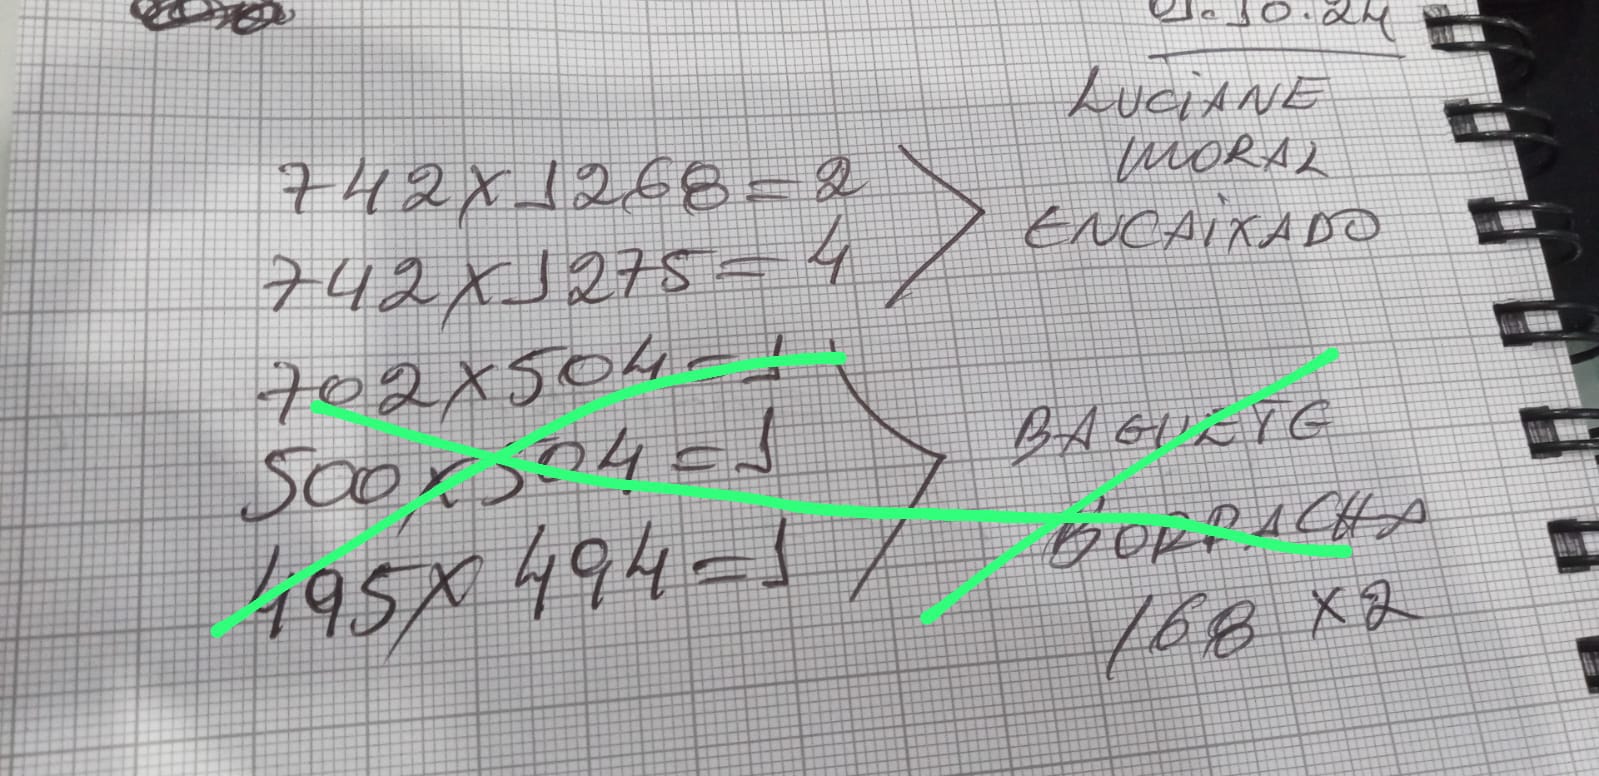 01.10.24
LUCIANE
MORAL
ENCAIXADO
742x1268=2
742x1275=4
702x504=1
500x504=1
495x494=1
BAGUETE
BORRACHA
168 x2